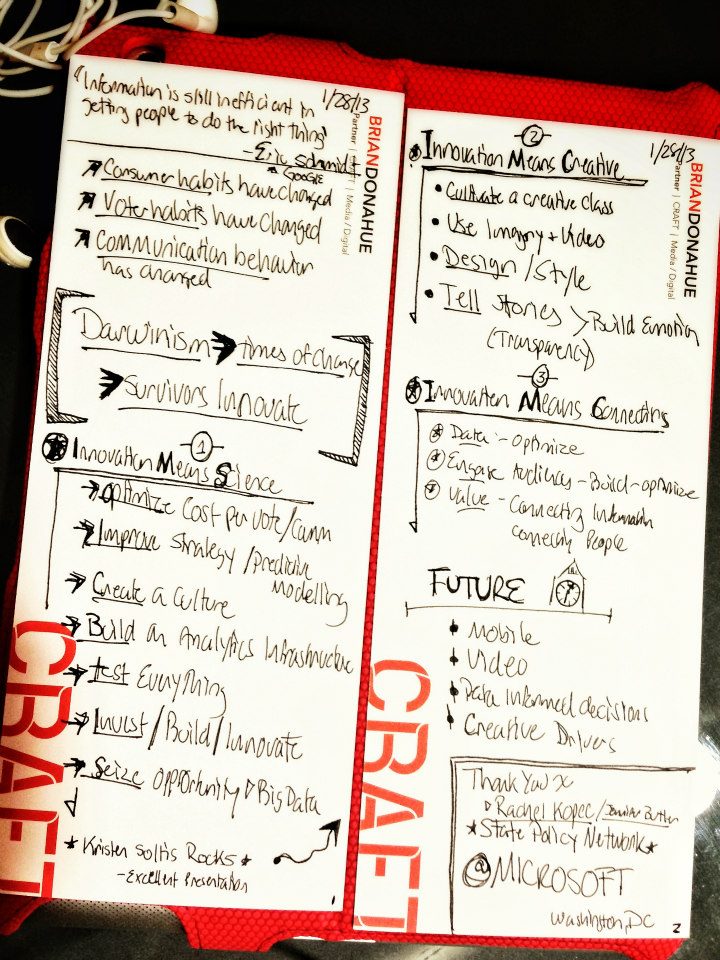 "Information is still inefficient in
getting people to do the right thing"
- Eric Schmidt
* GOOGLE
1/28/13
BRIANDONAHUE
Partner | CRAFT | Media / Digital
Consumer habits have changed
Voter habits have changed
Communication behavior
has changed
Darwinism times of change
Survivors Innovate
1
Innovation Means Science
Optimize Cost per vote/comm
Improve strategy / Predictive
Modelling
Create a culture
Build an Analytics Infrastructure
test Everything
Invest/Build/Innovate
Seize opportunity Big Data
* Kristen Soltis Rocks *
- Excellent Presentation
1
CRAFT
2
1/28/13
BRIANDONAHUE
Partner | CRAFT | Media / Digital
Innovation Means Creative
• Cultivate a creative class
• Use Imagery + Video
• Design/Style
• Tell Stories > Build Emotion
(Transparency)
3
Innovation Means Connecting
Data - optimize
Engage Audiences - Build - optimize
Value - Connecting Information
connecting People
FUTURE
Mobile
Video
Data informed decisions
Creative Drivers
Thank You x
Rachel Kopec / Jennifer Butler
*State Policy Network*
@MICROSOFT
Washington, DC
2
CRAFT